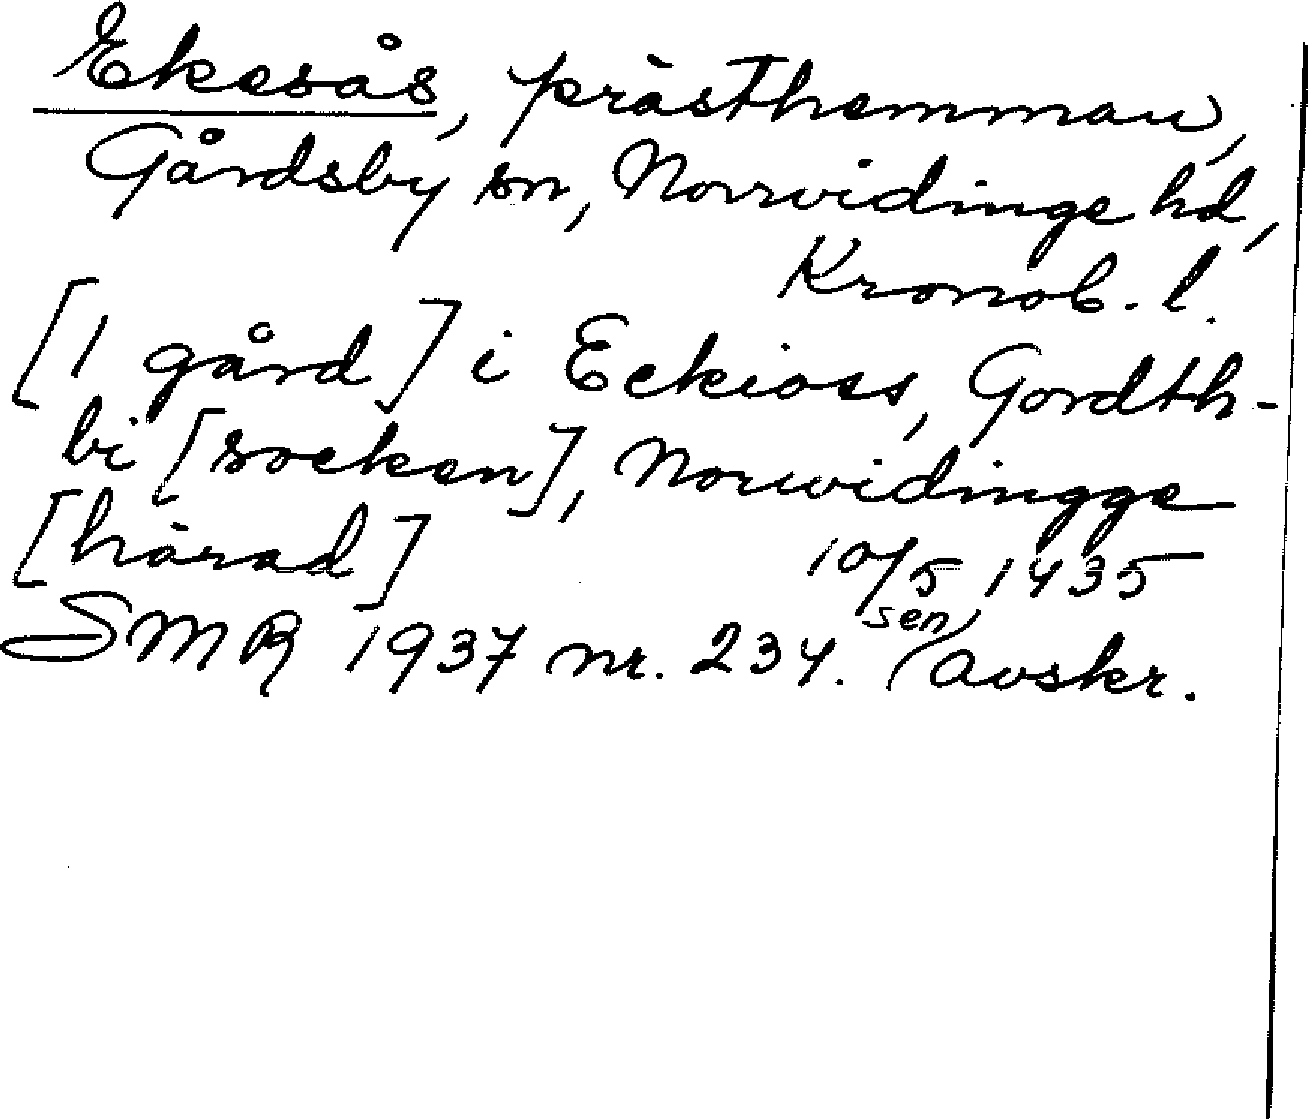 Ekesås, prästhemman,
Gårdsby sn, Norrvidinge hd,
Kronob. l.
[1 gård] i Eekioss, Gordth-
bi [socken], Norwidingge
[härad] 10/5 1435
SMR 1937 nr. 234. sen avskr.